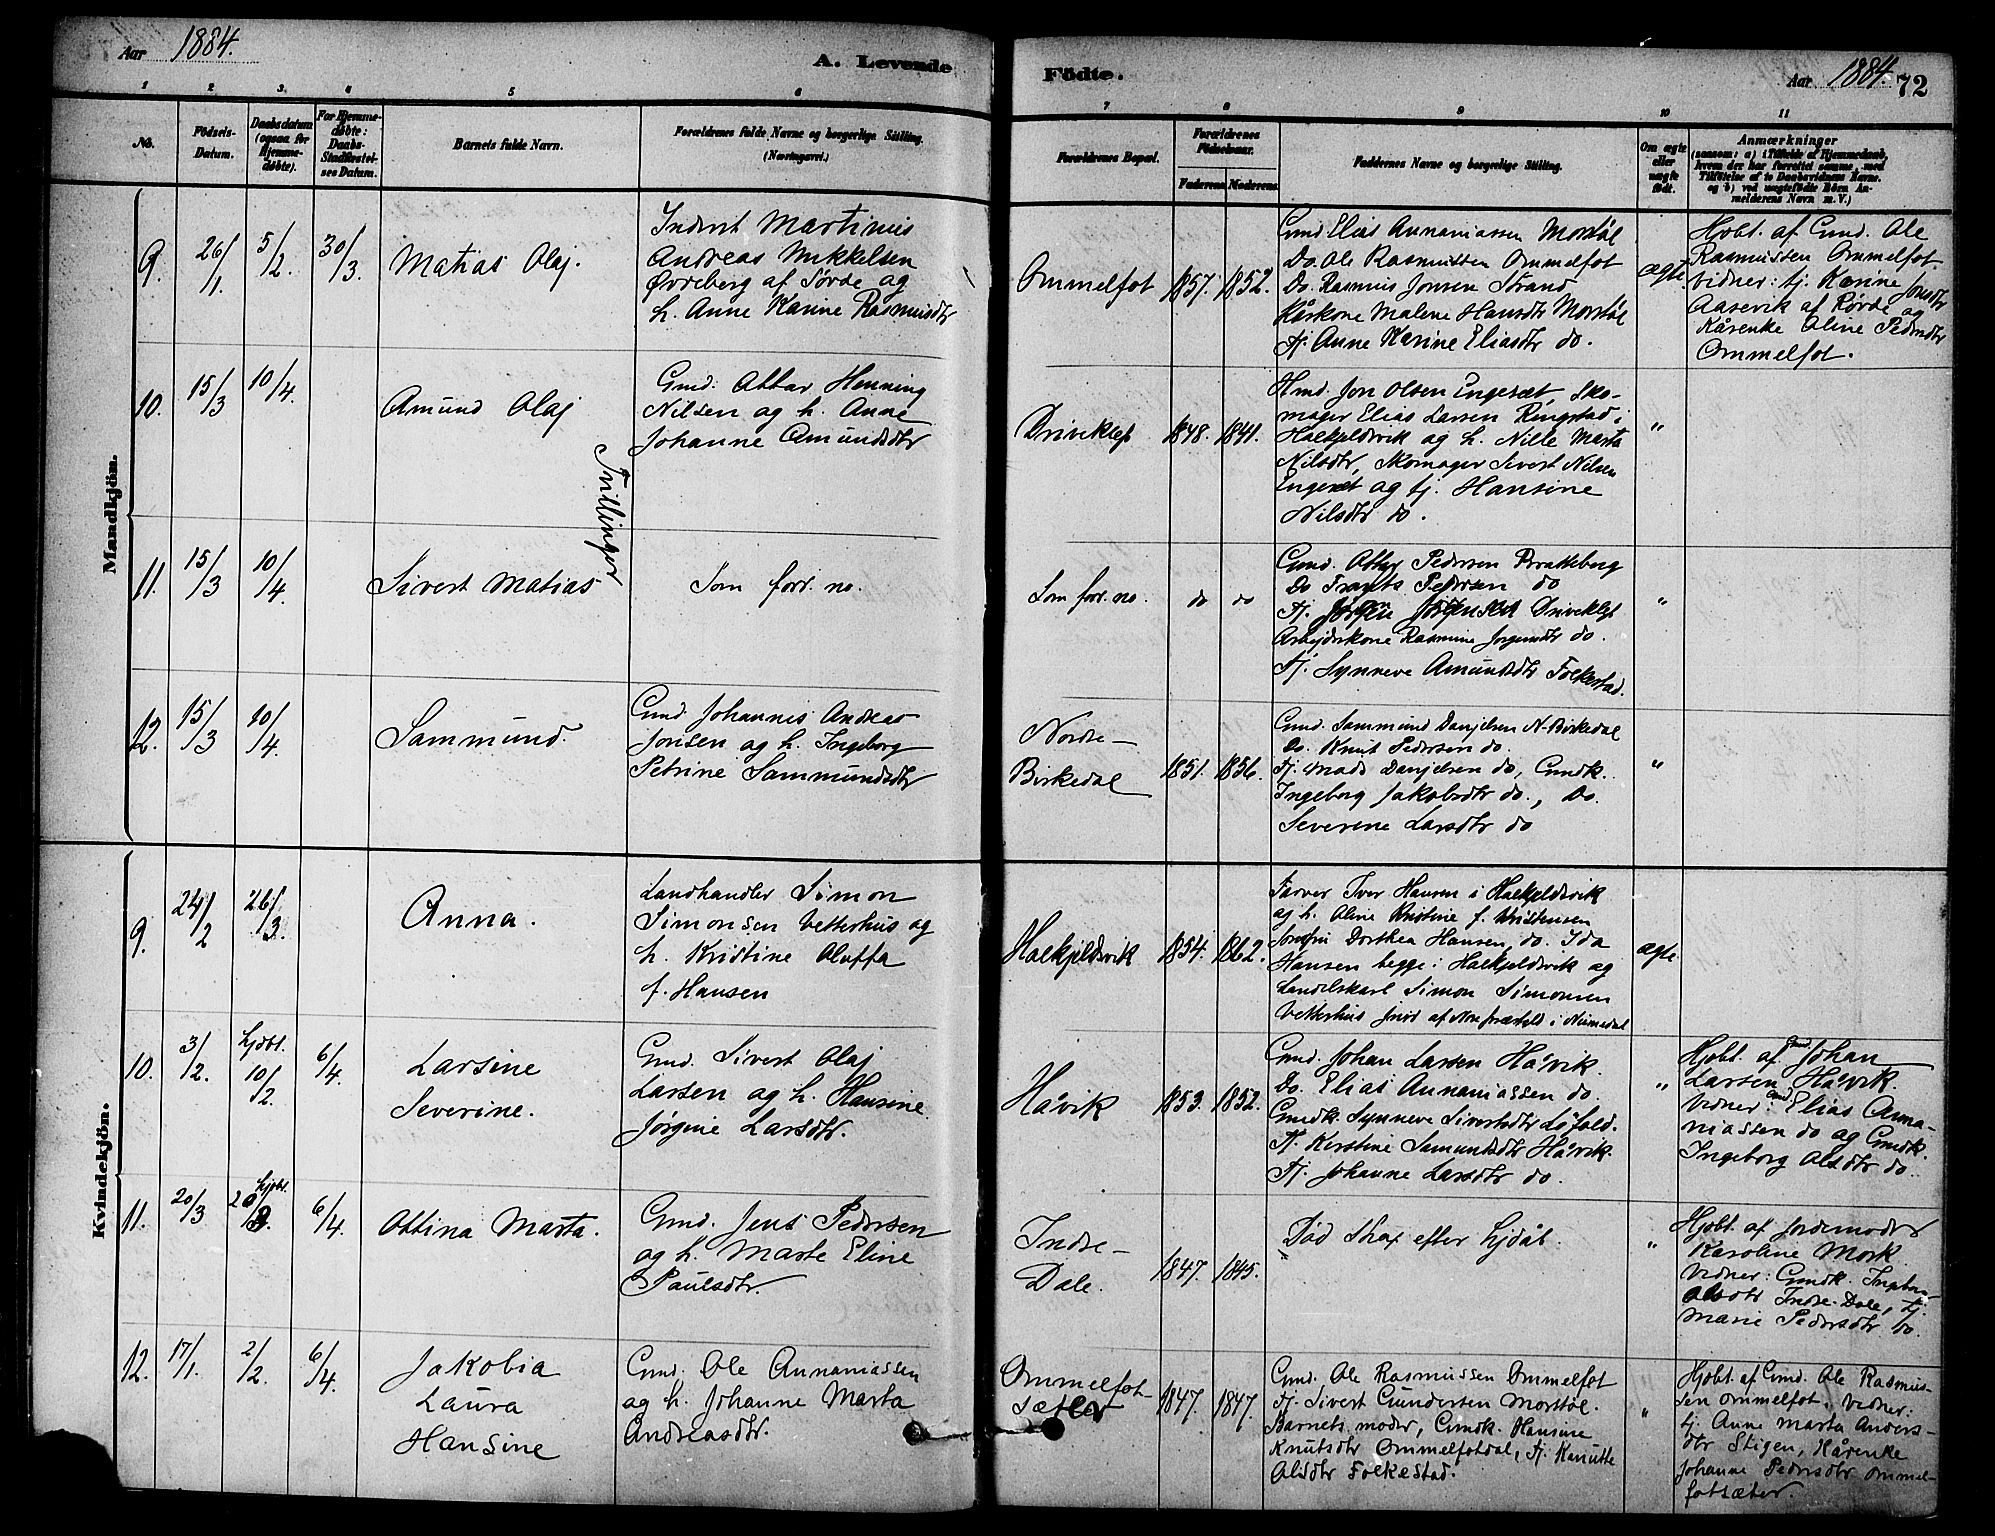 Aar 1884.
A. Levende
Födte.
Aar 1884. 72
1 2 3. 4 5 6 7 8 9 10 11
No.
Födsels-
Datum.
Daabsdatum
(ogsaa for
Hjemme-
döbte).
For Hjemme-
döbte:
Daabs-
Stadfæstel-
ses Datum.
Barnets fulde Navn.
Forældrenes fulde Navne og borgerlige Stilling.
(Næringsvei.)
Forældrenes Bopæl.
Forældrenes
Födselsaar.
Faderens. Moderens.
Faddernes Navne og borgerlige Stilling.
Om ægte
eller
uægte
født.
Anmærkninger
(saasom: a) i Tilfælde af Hjemmedaab,
hvem der har forrettet samme, med
Tilföielse af to Daabsvidners Navne,
og b) ved uægtefödte Börn An-
melderens Navn m. V.)
Mandkjön.
9. 26/1 5/2. 30/3. Matias Olaj.
Inderst Martinus
Andreas Mikkelsen
Ørreberg af Sörde og
h. Anne Karine Rasmusdtr
Ommelfot 1857. 1852.
Gmd Elias Annaniassen Morstöl
Do. Ole Rasmussen Ommelfot
Do. Rasmus Jonsen Strand
Kårkone Malene Hansdtr Morstöl
tj. Anne Karine Eliasdtr do.
ægte
Hjdbt. af Gmd. Ole
Rasmussen Ommelfot.
vidner: tj. Karine Jonsdtr
Aasevik af Rövde og
Kårenke Oline Pedersdtr
Ommelfot.
10. 15/3 10/4. Amund Olaj
Tvillinger
Gmd: Ottar Henning
Nilsen og h. Anne
Johanne Amundsdtr
Driveklep 1848. 1841.
Hmd. Jon Olsen Engesæt, Sko-
mager Elias Larsen Ringstad i
Halkjeldsvik og h. Nille Marta
Nilsdtr, Skomager Sivert Nilsen
Engeset og tj. Hansine
Nilsdtr do.
"
11. 15/3 10/4. Sivert Matias
Som forr. no.
Som forr. no. do do
Gmd. Ottar Pedersen Bratteberg
Do Pedersen do
tj. Jörgen Jörgensen Driveklep
Arbejdskone Rasmine Jorgensdtr do.
tj. Synneve Amundsdtr Folkestad.
"
12. 15/3 10/4. Sammund.
Gmd. Johannes Andreas
Jonsen og h. Ingeborg
Petrine Sammundsdtr
Nordre-
Birkedal 1851. 1856.
Gmd. Sammund Danjelsen N-Birkedal
Do. Knut Pedersen do.
tj. Mads Danjelsen do, Gmdk.
Ingeborg Jakobsdtr do., Do.
Severine Larsdtr do
"
Kvindekjön.
9. 24/2 26/3. Anna.
Landhandler Simon
Simonsen Vetterhus og
h. Kristine Oluffa
f. Hansen
Halkjeldsvik 1854. 1862.
Farver Iver Hansen i Halkjeldsvik
og h. Oline Kristine f. Kristensen
Dorthea Hansen, do. Ida
Hansen begge i Halkjeldsvik og
Handelskarl Simon Simonsen
Vetterhus
ægte.
10. 3/2. hjdbt. 10/2 6/4. Larsine
Severine.
Gmd. Sivert Olaj
Larsen og h. Hansine
Jørgine Larsdtr.
Håvik 1853. 1852.
Gmd. Johan Larsen Håvik.
Do. Elias Annaniassen do.
Gmdk. Synneve Sivertsdtr Løfold.
tj. Kerstine Samundsdtr Håvik.
tj. Johanne Larsdtr do.
"
Hjdbt. af Gmd. Johan
Larsen Håvik.
Vidner: Gmd Elias Anna-
niassen do og Gmdk.
Ingeborg Olsdtr do.
11. 20/3 hjdbt. 20/3. 6/4. Ottina Marta.
Gmd. Jens Pedersen
og h. Marte Eline
Paulsdtr.
Indre-
Dale. 1847. 1845.
Död strax efter hjdåb.
"
Hjdbt. af Jordemoder
Karoline Mork
Vidner: Gmdk. Ingebor
Olsdtr Indre-Dale, tj.
Marie Pedersdtr do.
12. 17/1. 2/2 6/4. Jakobia
Laura
Hansine
Gmd. Ole Annaniassen
og h. Johanne Marta
Andreasdtr.
Ommelfot-
sæter 1847. 1847.
Gmd. Ole Rasmussen Ommelfot
tj. Sivert Gundersen Morstöl.
Barnets moder, Gmdk. Hansine
Knutsdtr Ommelfotdal, tj. Kanutte
Olsdtr Folkestad.
"
Hjdbt. af Gmd. Ole Rasmus-
sen Ommelfot. Vidner:
tj. Anne Marta Anders-
dtr Stigen, Kårenke
Johanne Pedersdtr Ommel-
fotsæter.